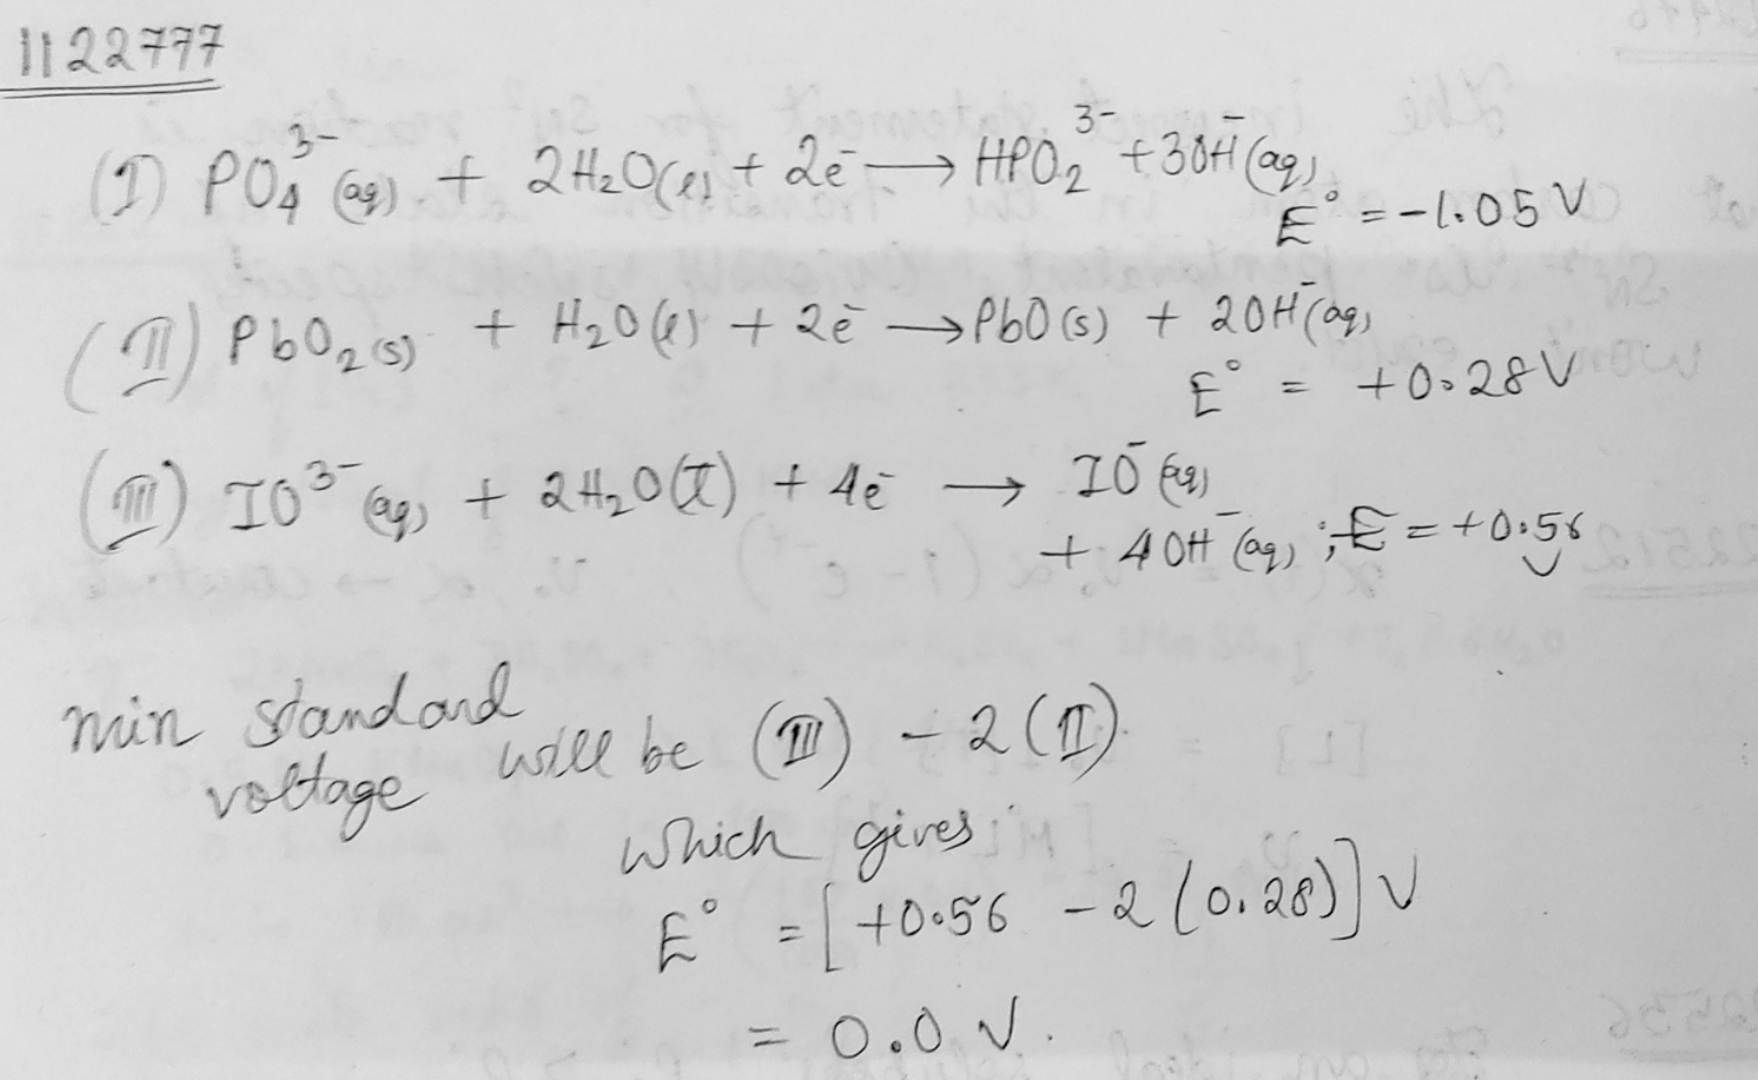 1122777
(I) PO₄³⁻(aq) + 2H₂O(l) + 2e⁻ ⟶ HPO₂³⁻ + 3OH⁻(aq)
E° = -1.05 V
(II) PbO₂(s) + H₂O(l) + 2e⁻ ⟶ PbO(s) + 2OH⁻(aq)
E° = +0.28 V
(III) IO³⁻(aq) + 2H₂O(I) + 4e⁻ ⟶ IO⁻(aq)
+ 4OH⁻(aq) ; E = +0.56 V
min standard
voltage will be (III) - 2(II)
which gives
E° = [+0.56 - 2(0.28)] V
= 0.0 V.